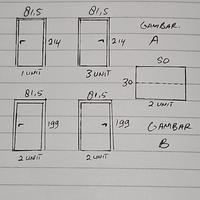 81,5 81,5 GAMBAR
214 214 A
1 UNIT 3 UNIT 50
30
81,5 81,5 2 UNIT
199 199 GAMBAR
B
2 UNIT 2 UNIT